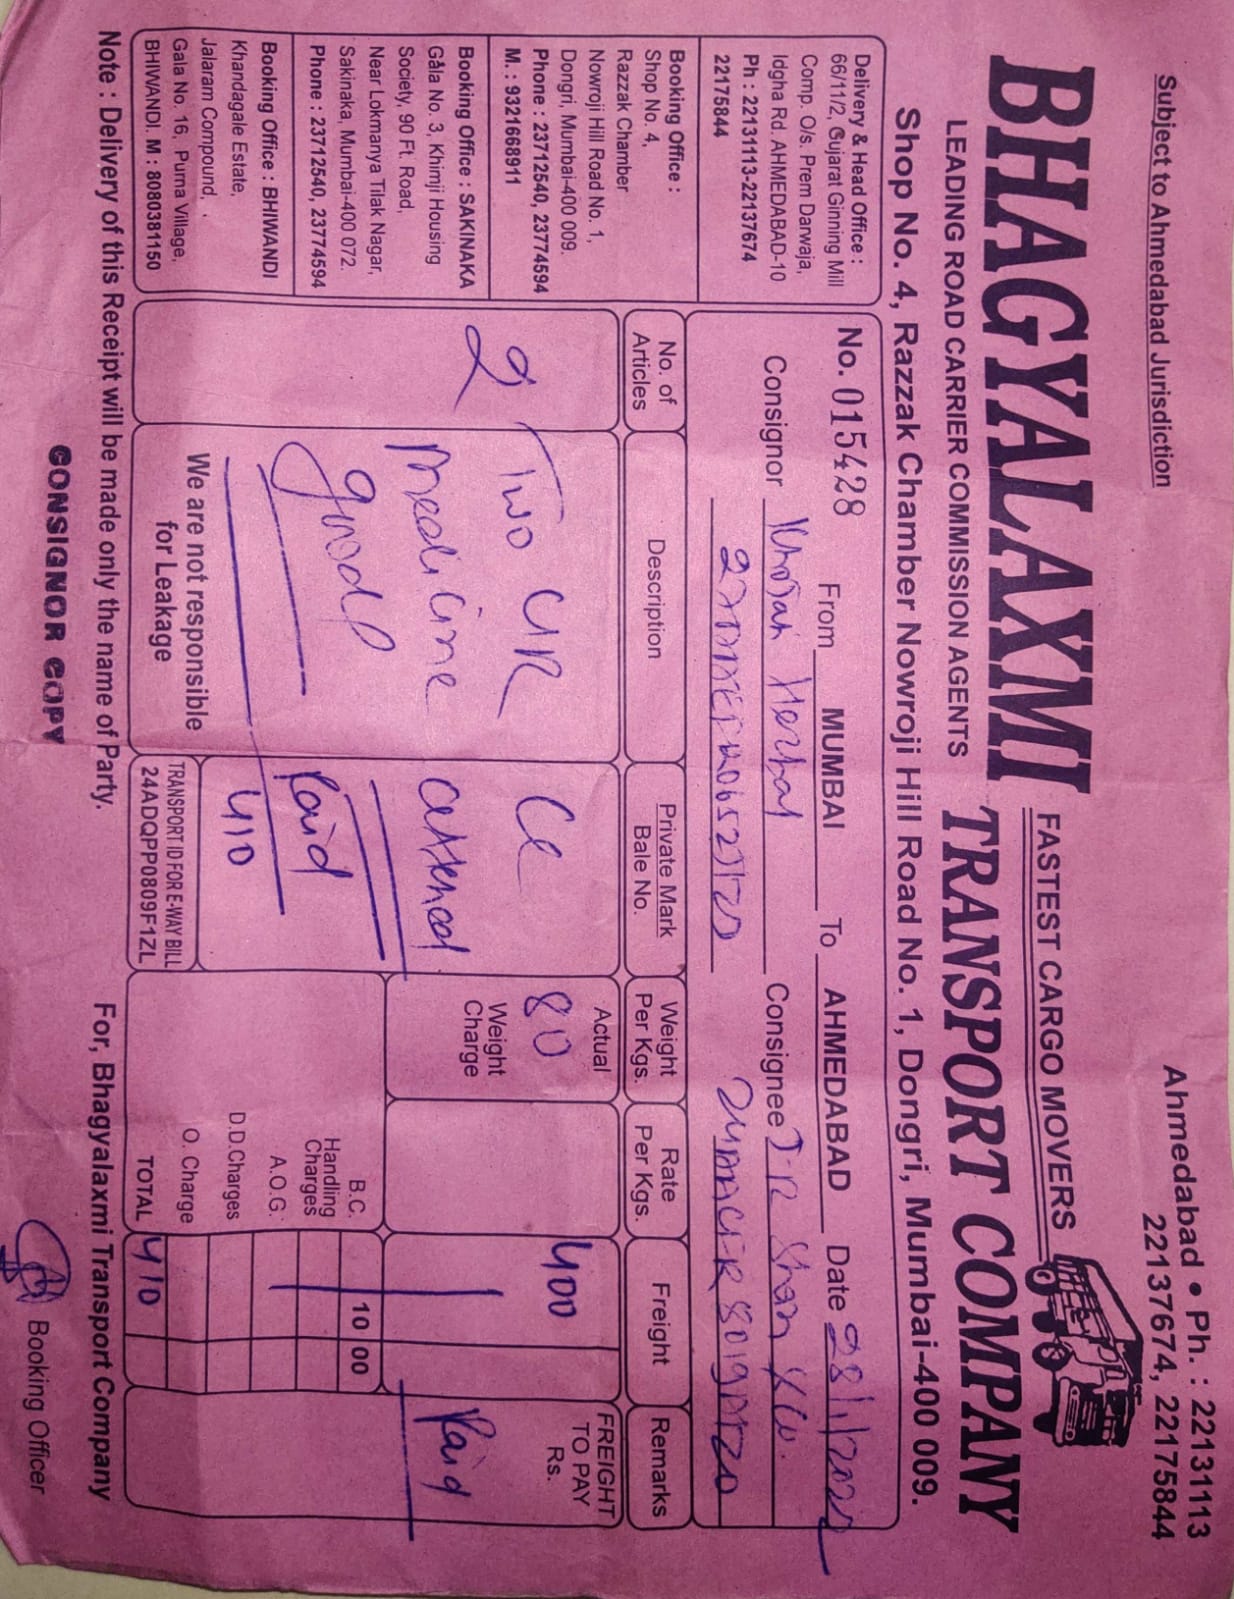 Subject to Ahmedabad Jurisdiction
Ahmedabad • Ph. : 22131113
22137674, 22175844
FASTEST CARGO MOVERS
BHAGYALAXMI TRANSPORT COMPANY
LEADING ROAD CARRIER COMMISSION AGENTS
Shop No. 4, Razzak Chamber Nowroji Hill Road No. 1, Dongri, Mumbai-400 009.
Delivery & Head Office :
66/11/2, Gujarat Ginning Mill
Comp. O/s. Prem Darwaja,
Idgha Rd. AHMEDABAD-10
Ph : 22131113-22137674
22175844
No. 015428 From MUMBAI To AHMEDABAD Date 28/1/2022
Consignor Consignee J.R Shah
Booking Office :
Shop No. 4,
Razzak Chamber
Nowroji Hill Road No. 1,
Dongri, Mumbai-400 009.
Phone : 23712540, 23774594
M. : 9321668911
Booking Office : SAKINAKA
Gala No. 3, Khimji Housing
Society, 90 Ft. Road,
Near Lokmanya Tilak Nagar,
Sakinaka, Mumbai-400 072.
Phone : 23712540, 23774594
Booking Office : BHIWANDI
Khandagale Estate,
Jalaram Compound,
Gala No. 16, Purna Village,
BHIWANDI. M : 8080381150
No. of Articles
Description
Private Mark
Bale No.
Weight Per Kgs.
Rate Per Kgs.
Freight
Remarks
2
Two
medicine
good
We are not responsible
for Leakage
attached
Paid
410
TRANSPORT ID FOR E-WAY BILL
24ADQPP0809F1ZL
Actual
80
Weight
Charge
400
FREIGHT
TO PAY
Rs.
Paid
B.C. 10 00
Handling
Charges
A.O.G.
D.D.Charges
O. Charge
TOTAL 410
Note : Delivery of this Receipt will be made only the name of Party.
For, Bhagyalaxmi Transport Company
CONSIGNOR COPY
Booking Officer